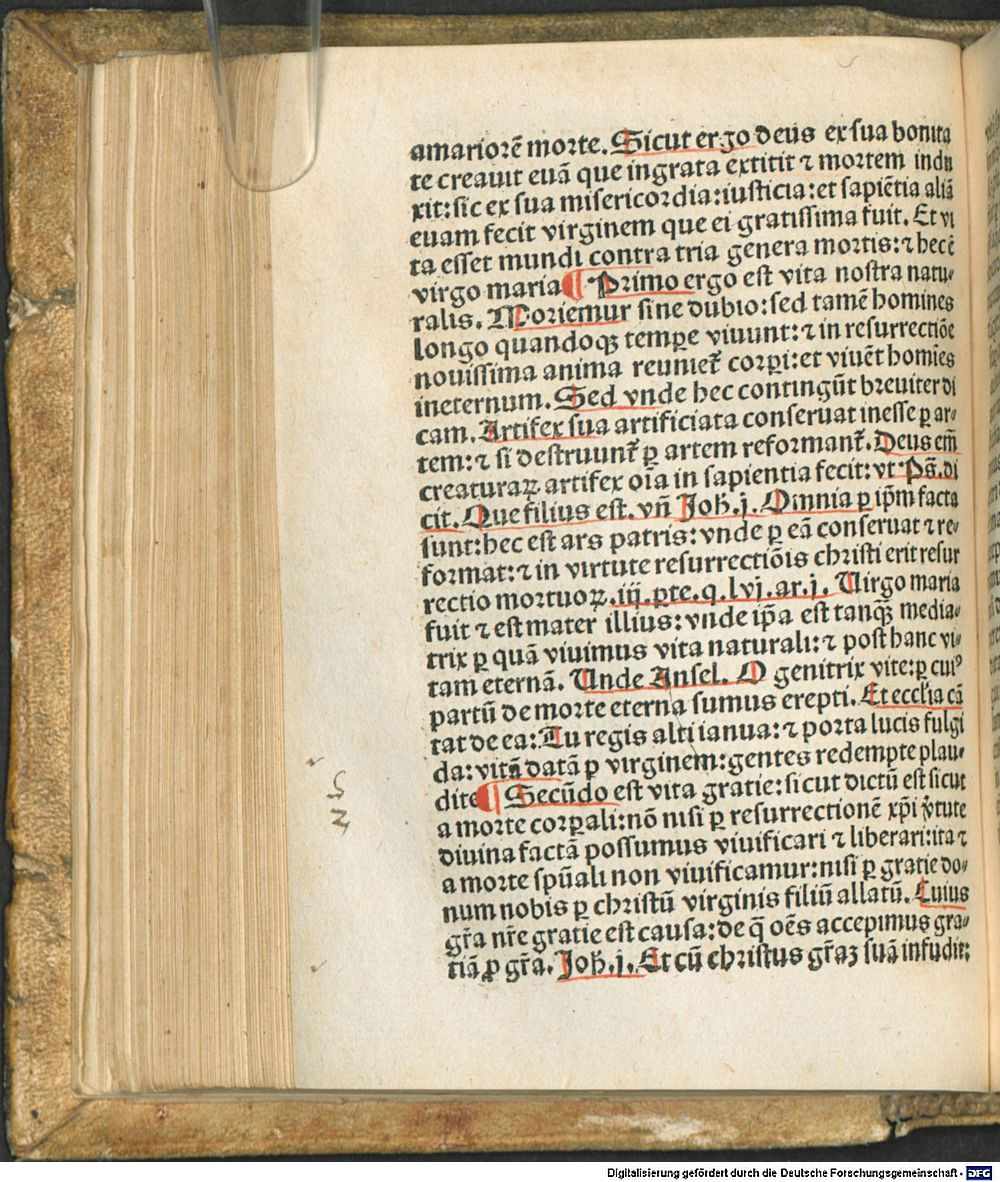 amariorē morte. Sicut ergo deus ex sua bonita
te creauit euā que ingrata extitit ⁊ mortem indu
xit: sic ex sua misericordia: iusticia: et sapiētia aliā
euam fecit virginem que ei gratissima fuit. Et vi
ta esset mundi contra tria genera mortis: ⁊ hec ē
virgo maria ¶ Primo ergo est vita nostra natu-
ralis. Moriemur sine dubio: sed tamē homines
longo quandoqꝫ tempꝑe viuunt: ⁊ in resurrectiōe
nouissima anima reunietr̄ corꝑi: et viuēt homīes
ineternum. Sed vnde hec contingūt breuiter di
cam. Artifex sua artificiata conseruat inesse ꝑ ar-
tem: ⁊ si destruuntr̄ ꝑ artem reformantr̄. Deus em̄
creaturaꝝ artifex oīa in sapientia fecit: vt Ps̄. di
cit. Que filius est. vn̄ Joh̄. j. Omnia ꝑ ip̄m facta
sunt: hec est ars patris: vnde ꝑ eā conseruat ⁊ re-
format: ⁊ in virtute resurrectiōis christi erit resur
rectio mortuoꝝ. iij. ꝑte. q. lvj. ar. j. Uirgo maria
fuit ⁊ est mater illius: vnde ip̄a est tanqꝫ̄ media-
trix ꝑ quā viuimus vita naturali: ⁊ post hanc vi-
tam eternā. Unde Ansel. O genitrix vite: ꝑ cuiꝰ
partū de morte eterna sumus erepti. Et ecclīa cā
tat de ea: Tu regis alti ianua: ⁊ porta lucis fulgi
da: vitā datā ꝑ virginem: gentes redempte plau-
dite ¶ Secūdo est vita gratie: sicut dictū est sicut
a morte corꝑali: nō nisi ꝑ resurrectionē xp̄i v̄tute
diuina factā possumus viuificari ⁊ liberari: ita ⁊
a morte spūali non viuificamur: nisi ꝑ gratie do-
num nobis ꝑ christū virginis filiū allatū. Cuius
gr̄a nr̄e gratie est causa: de q̄ oēs accepimus gra-
tiā ꝓ gr̄a. Joh̄. j. Et cū christus gr̄aꝫ suā infudit:
Digitalisierung gefördert durch die Deutsche Forschungsgemeinschaft - DFG